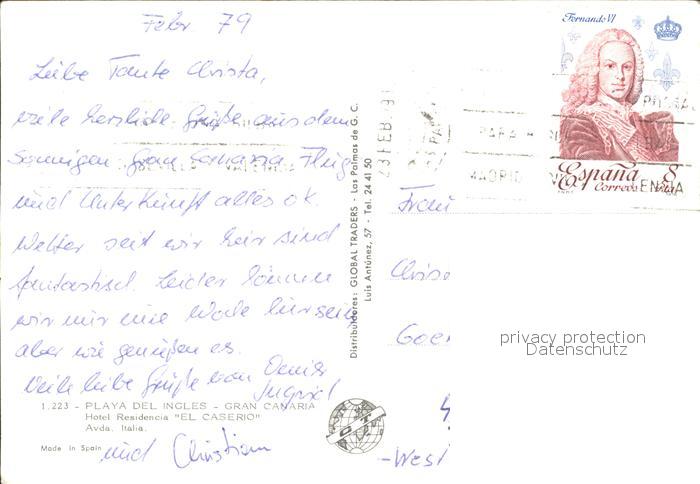 Febr 79
Liebe Tante Christa,
viele herzliche Grüße aus dem
sonnigen Gran Canaria. Flug
und Unterkunft alles ok.
Wetter seit wir hier sind
fantastisch. Leider können
wir nur eine Woche hier sein
aber wir genießen es.
Viele liebe Grüße von Deiner
Ingrid
und Christian
1.223 - PLAYA DEL INGLES - GRAN CANARIA
Hotel Residencia "EL CASERIO"
Avda. Italia.
Made in Spain
Distribuidores: GLOBAL TRADERS - Las Palmas de G. C.
Luis Antúnez, 57 - Tel. 24 41 50
Fernando VI
España 8
Correos
23 FEB
PARA
MADRID
VALENCIA
Frau
Goe
-West
privacy protection
Datenschutz